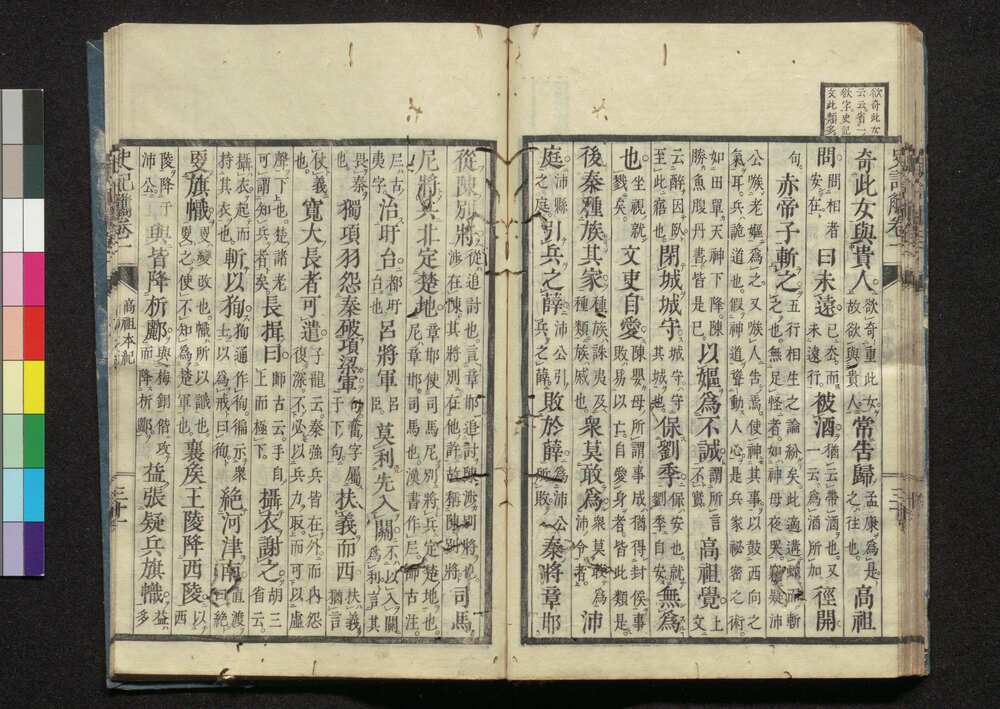 欲奇此女
云云。省一
欲字。史記
文此類多
奇此女與貴人。欲奇重此女。故欲與貴人。常告歸孟康為是之往也。高祖
問間相者安在。曰未遠已去而未遠行。被酒猶云帶酒也。又一云為酒所加徑開
句。赤帝子斬之五行相生之論紛矣此適遘蟒而斬之也無足怪者。如神母夜哭。竊疑沛
公嗾老嫗為之。又嗾人告焉。使神其事。以鼓西向之氣耳。兵詭道也。假神道聳動人心。是兵家祕密之術。
如田單天神下降。陳勝魚腹丹書。皆是已。以嫗為不誠謂所言不實。高祖覺上文
云醉因臥。至此寤也。閉城城守城守守其城也。保劉季保安也。就劉季自安。無為
也坐視就戮矣。文吏自愛陳嬰母所謂事成猶得封侯。事敗易以亡。自愛身者。皆此類是
後秦種族其家種族。誅夷及其種類族也。衆莫敢為衆莫敢為沛令者。沛
庭沛縣之庭。引兵之薛沛公引兵之薛。敗於薛為沛公所敗。秦將章邯
從陳別將從追討也。言章邯追討陳涉。涉在陳。其將別在他許。故稱陳別將。司馬
尼將兵北定楚地章邯使司馬尼別將兵定楚地也。尼章邯司馬也。漢書作尸。師古注。
尸古夷字。治盱台都盱台也。呂將軍呂臣。莫利先入關不以入關為利。言其
畏秦也。獨項羽怨秦破項梁軍奮字屬于下句。扶義而西扶義。猶言
仗義也。寬大長者可遣子龍云。秦強兵皆在外。而內怨復深。不必以兵力取。而可以虛
聲下也。楚諸老可謂知兵者矣。長揖曰師古云。手自上而極下。攝衣謝之胡三省云。
攝衣。起而持其衣也。斬以狥狥通作徇。徇示衆士以為戒曰徇。絕河津南直渡曰絕
更旗幟更變改也。幟所以識也。更之使不知為楚軍也。襄侯王陵降西陵以西
陵降于沛公。與皆降析酈與梅鋗偕攻而降析酈。益張疑兵旗幟益多
史記觿卷一
高祖本紀
三十